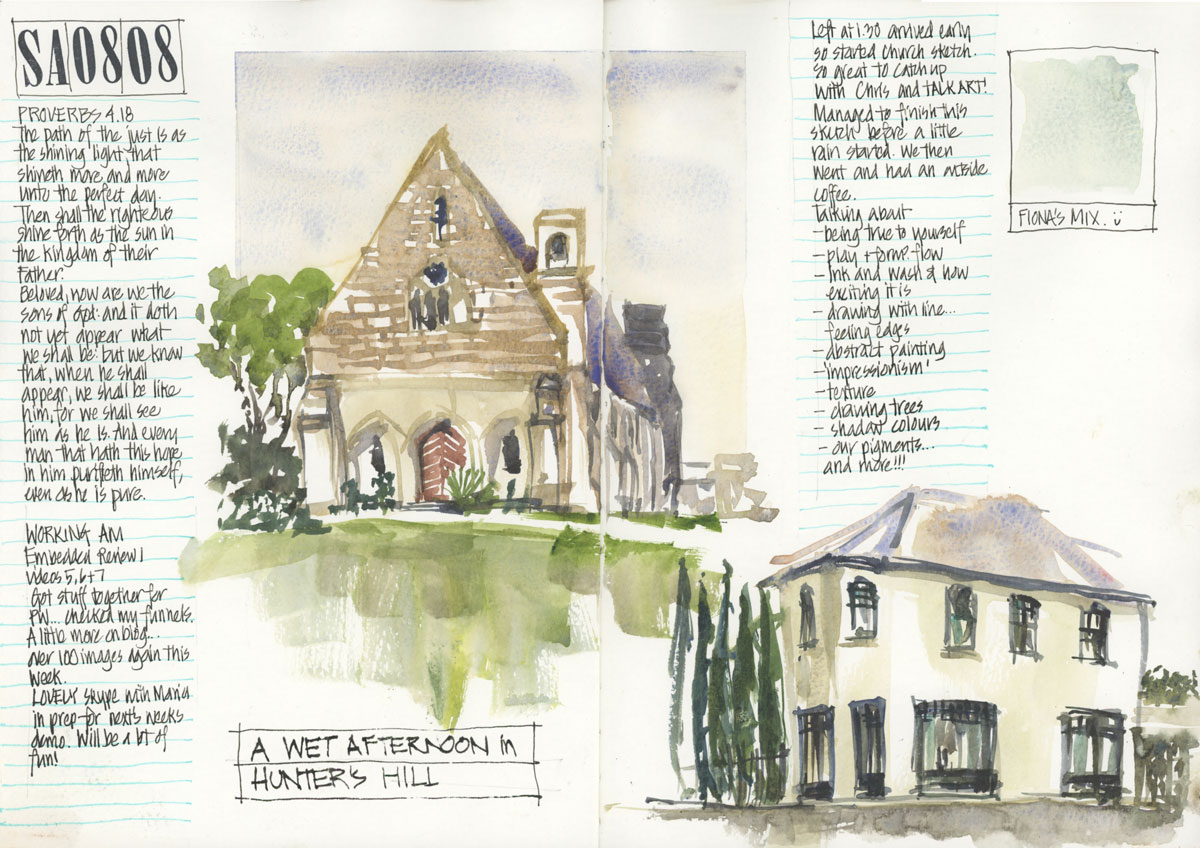 SA0808
PROVERBS 4.18
The path of the just is as
the shining light, that
shineth more and more
unto the perfect day.
Then shall the righteous
shine forth as the sun in
the kingdom of their
Father.
Beloved, now are we the
sons of God: and it doth
not yet appear what
we shall be: but we know
that, when he shall
appear, we shall be like
him, for we shall see
him as he is. And every
man that hath this hope
in him purifieth himself,
even as he is pure.
WORKING AM
Embedded Review 1
Videos 5, 6+7
Got stuff together for
PW... checked my funnels.
A little more on blog...
over 100 images again this
week.
LOVELY skype with Maria
in prep for next's weeks
demo. Will be a lot of
fun!
A WET AFTERNOON in
HUNTER'S HILL
Left at 1:30 arrived early
so started church sketch.
So great to catch up
with Chris and TALK ART!
Managed to finish this
sketch before a little
rain started. We then
went and had an outside
coffee.
Talking about
- being true to yourself
- play + form? flow
- Ink and wash & how
exciting it is
- drawing with line...
feeling edges
- abstract painting
- 'impressionism'
- texture
- drawing trees
- shadow colours
- our pigments...
and more!!!
FIONA'S MIX. ü